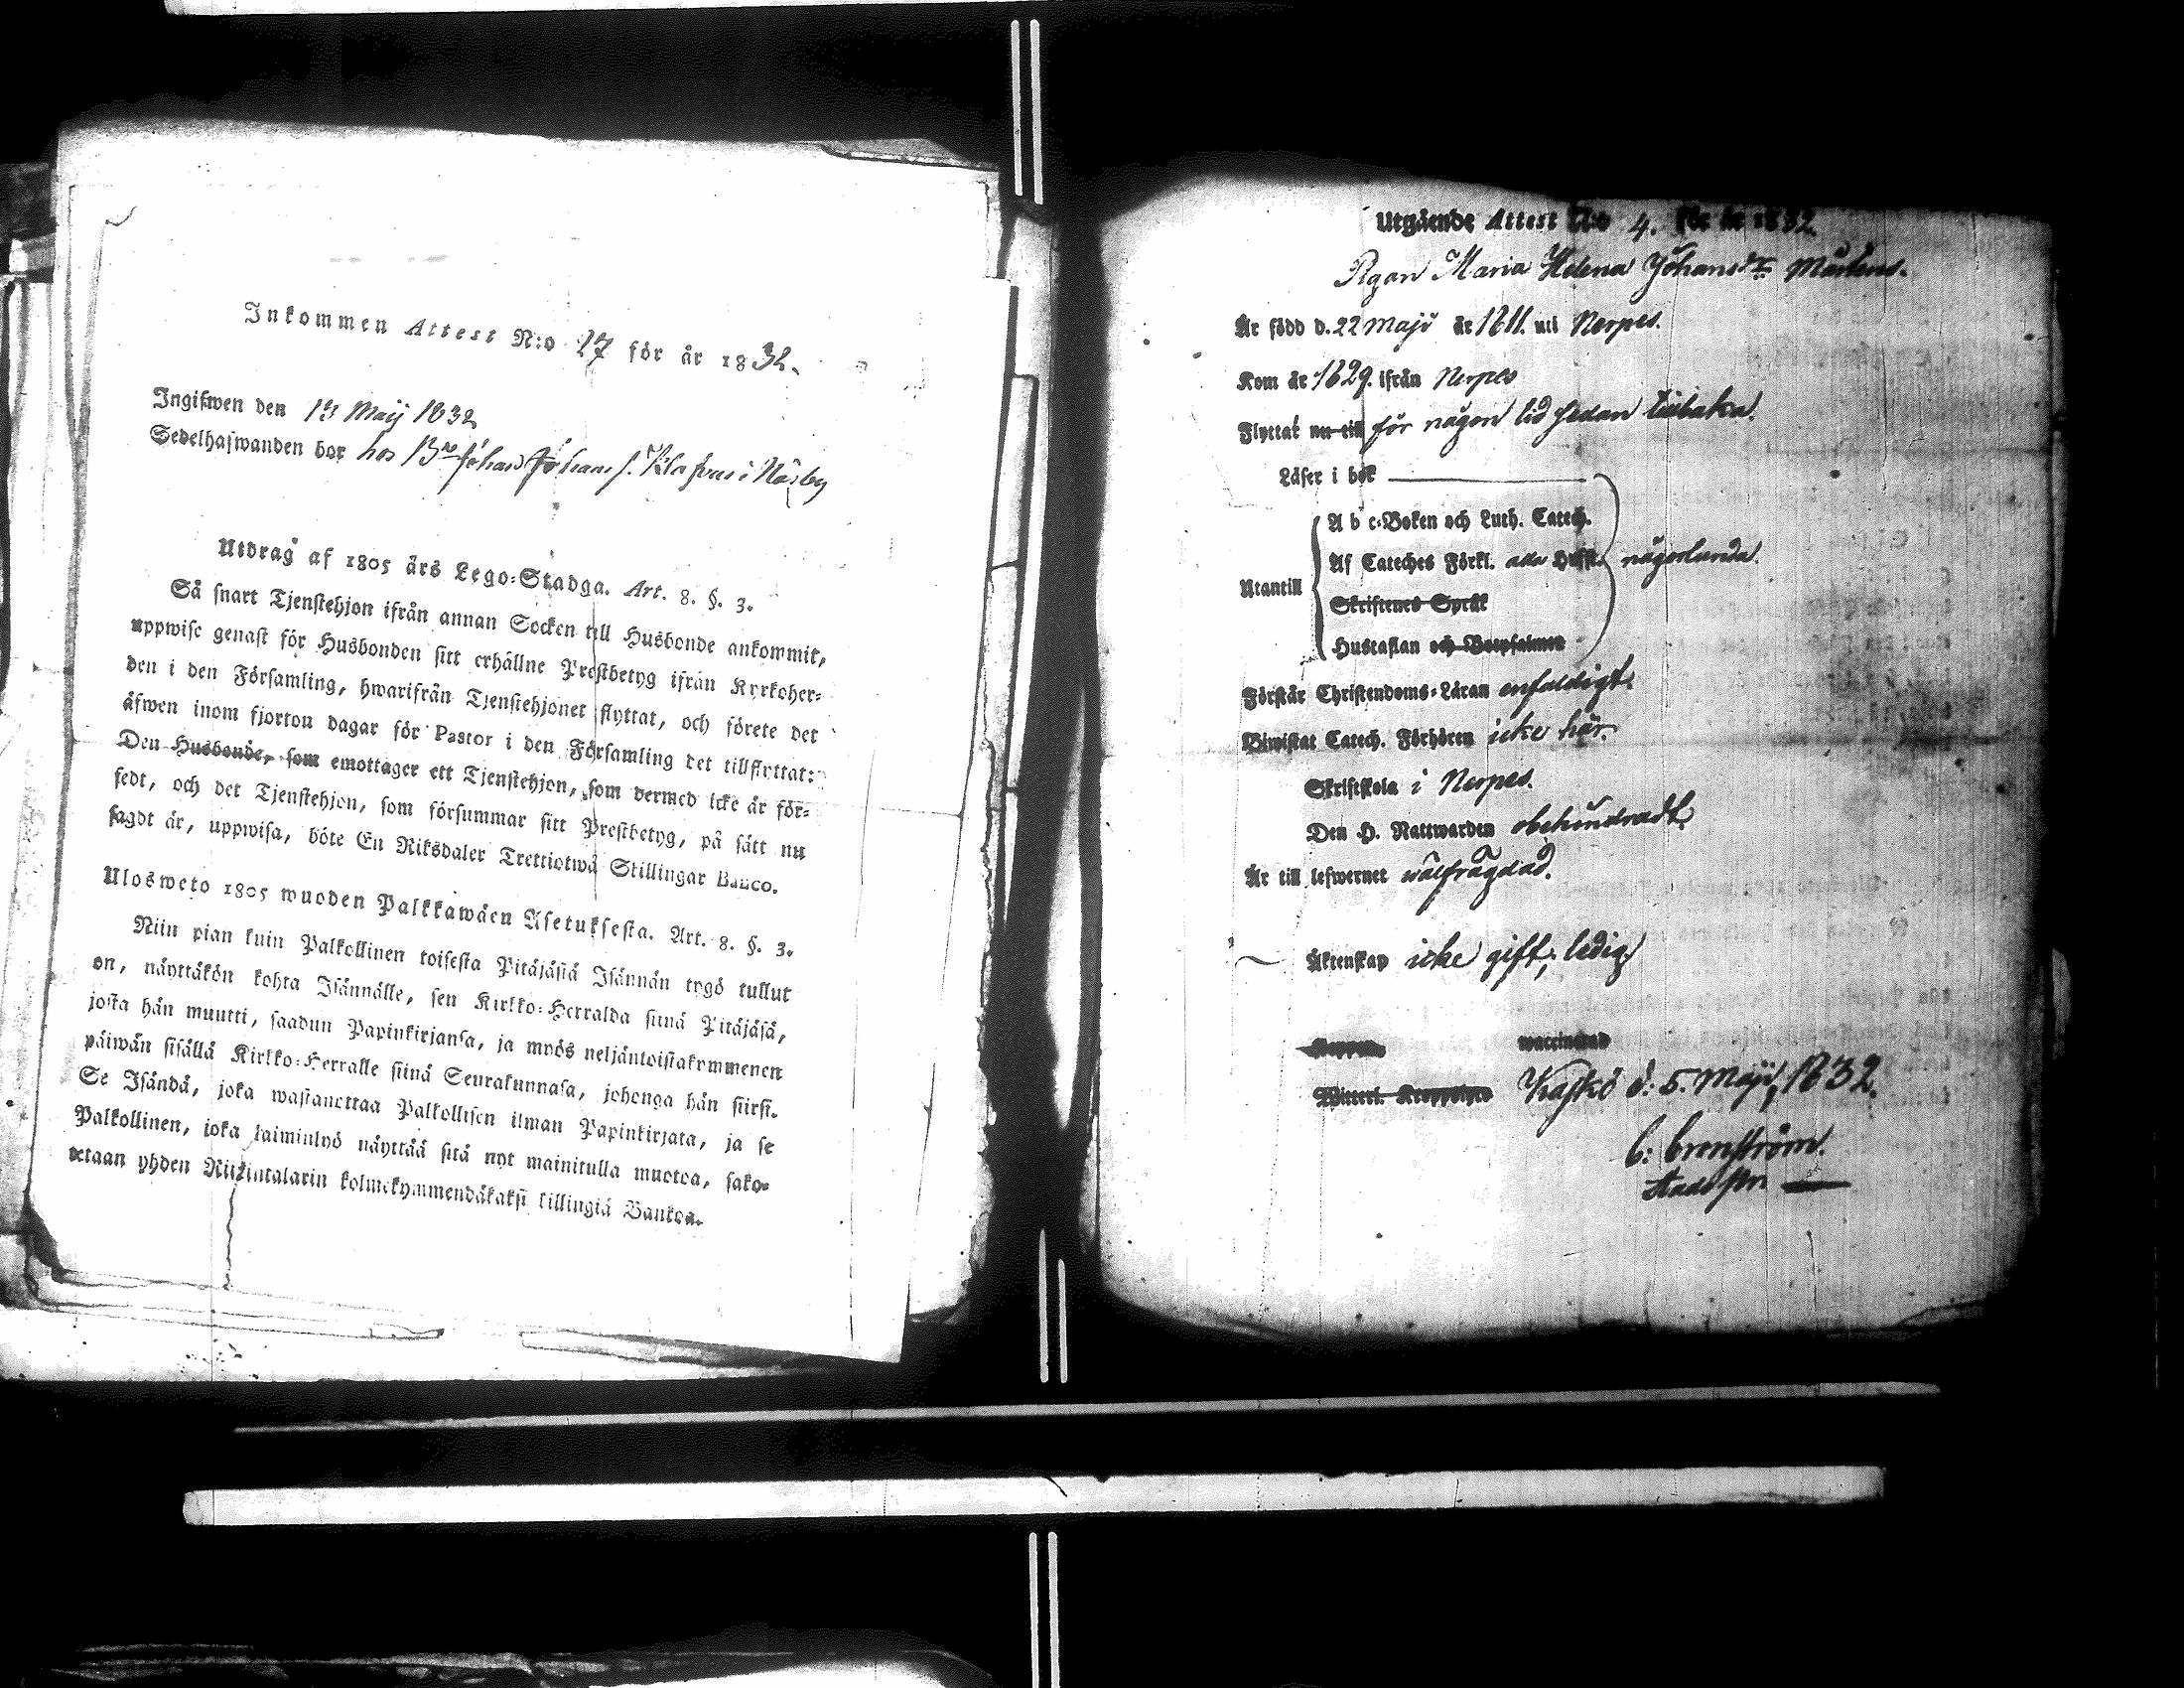 Inkommen Attest N:o 27 för år 1832.
Ingifwen den 13 Maij 1832
Sedelhafwanden bor hos Bn Johan Johans s. Klafvus i Näsby
Utdrag af 1805 års Lego-Stadga. Art. 8. §. 3.
Så snart Tjenstehjon ifrån annan Socken till Husbonde ankommit,
uppwise genast för Husbonden sitt erhållne Prestbetyg ifrån Kyrkoher-
den i den Församling, hwarifrån Tjenstehjonet flyttat, och förete det
äfwen inom fjorton dagar för Pastor i den Församling det tillflyttat:
Den Husbonde, som emottager ett Tjenstehjon, som dermed icke är för-
sedt, och det Tjenstehjon, som försummar sitt Prestbetyg, på sätt nu
sagdt är, uppwisa, böte En Riksdaler Trettiotwå Skillingar Banco.
Ulosweto 1805 wuoden Palkkawäen Asetuksesta. Art. 8. §. 3.
Niin pian kuin Palkollinen toisesta Pitäjästä Isännän tygö tullut
on, näyttäkön kohta Isännälle, sen Kirkko-Herralda siinä Pitäjäsä,
josta hän muutti, saadun Papinkirjansa, ja myös neljäntoistakymmenen
päiwän sisällä Kirkko-Herralle siinä Seurakunnasa, johonga hän siirsi.
Se Isändä, joka wastaanottaa Palkollisen ilman Papinkirjata, ja se
Palkollinen, joka laiminlyö näyttää sitä nyt mainitulla muotoa, sako-
tetaan yhden Riikintalarin kolmekymmendäkaksi killingiä Bankoa.
Utgående Attest N:o 4. för år 1832.
Pigan Maria Helena Johansdr Mårtens.
Är född d. 22 Maji år 1811. uti Nerpes.
Kom år 1829. ifrån Nerpes
Flyttat nu till för någon tid sedan tillbaka.
Läser i bok
A b c-Boken och Luth. Catech.
Utantill Af Cateches Förkl. alla Hufst. någorlunda.
Skriftenes Språk
Hustaflan och Botpsalmen
Förstår Christendoms-Läran enfaldigt.
Biwistat Catech. Förhören icke här.
Skriftskola i Nerpes.
Den H. Nattwarden obehindradt.
Är till lefwernet wälfrägdad.
Äktenskap icke gift, ledig.
Koppor waccinerad
Witterl. Kroppslyte Kaskö d: 5. Maji, 1832.